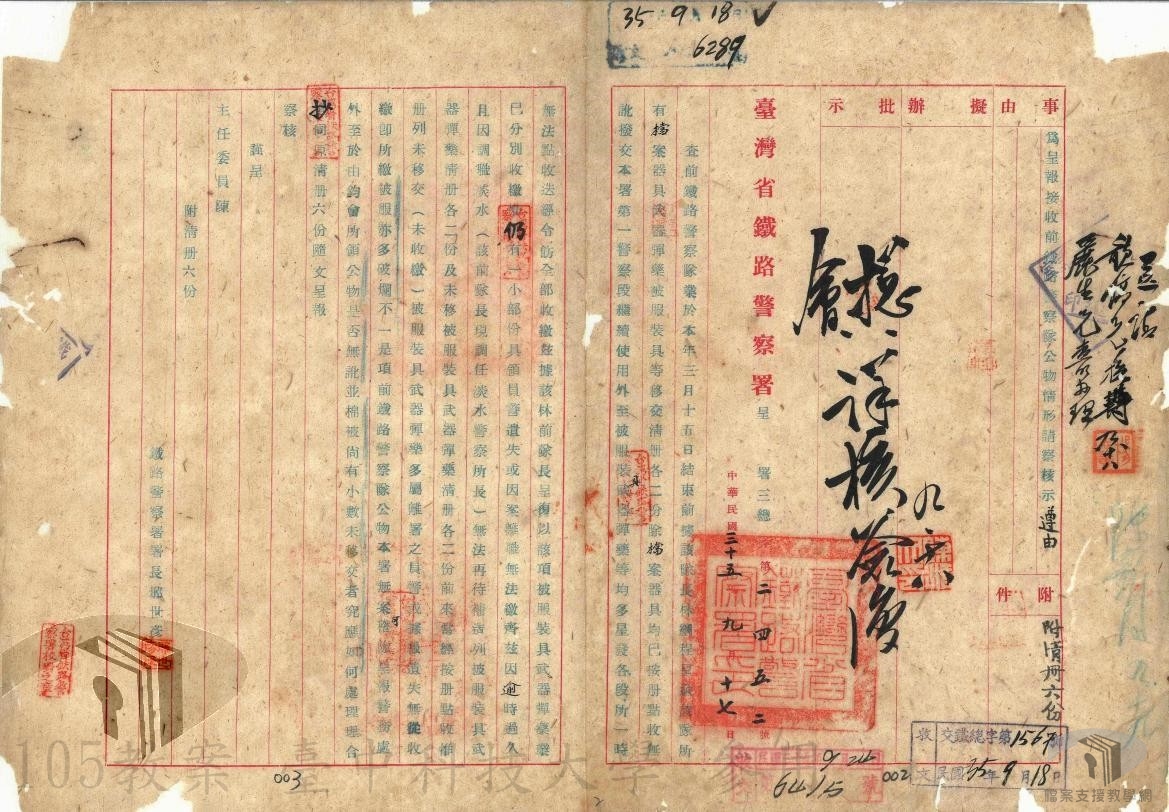 35 9 18
6289
事由
擬辦
批示
附件
為呈報接收前鐵路警察隊公物情形請察核示遵由
附清冊六份
擬詳核簽復
九、六
臺灣省鐵路警察署
呈
署三總
第二四五二號
中華民國三十五年九月十七日
查前鐵路警察隊業於本年三月十五日結束前據該隊長林
有檔案器具武器彈藥被服裝具等移交清冊各二份除檔案器具均已按冊點收無
訛撥交本署第一警察段繼續使用外至被服裝武器彈藥等均多星發各段所一時
無法點收迭經令飭全部收繳茲據該林前隊長呈復以該項被服裝具武器彈藥業
已分別收繳仍有一小部份具領員警遺失或因案離職無法繳齊茲因逾時過久
且因調職淡水(該前隊長現調任淡水警察所長)無法再待補造列被服裝具武
器彈藥清冊各二份及未移被服裝具武器彈藥清冊各二份前來當經按冊點收惟
冊列未移交(未收繳)被服裝具武器彈藥多屬離署之員警或據報遺失無從收
繳即所繳被服亦多破爛不一是項前鐵路警察隊公物本署無案
外至於由鈞會所領公物是否無訛並棉被尚有小數未移交者究應如何處理理合
抄同原清冊六份隨文呈報
察核
謹呈
主任委員陳
附清冊六份
鐵路警察署署長
收文
交鐵總字第1567號
民國35年9月18日
9 24
6415
002
003
105教案 臺中科技大學
檔案支援教學網